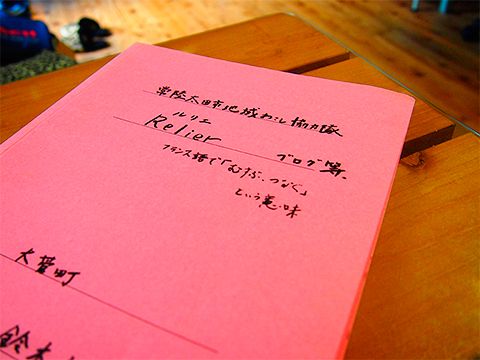 常陸太田市地域おこし協力隊
ルリエ
Relier ブログ等、
フランス語で「むすぶ、つなぐ」
という意味
大菅町
鈴木